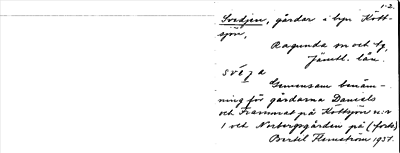 1-2.
Svedjen, gårdar i byn Kött-
sjön,
Ragunda sn och tg,
Jämtl. län.
Gemensam benäm-
ning för gårdarna Daniels
och Frammat på Köttsjön n:r
1 och Norbergsgården på (forts)
Bertil Flemström 1937.